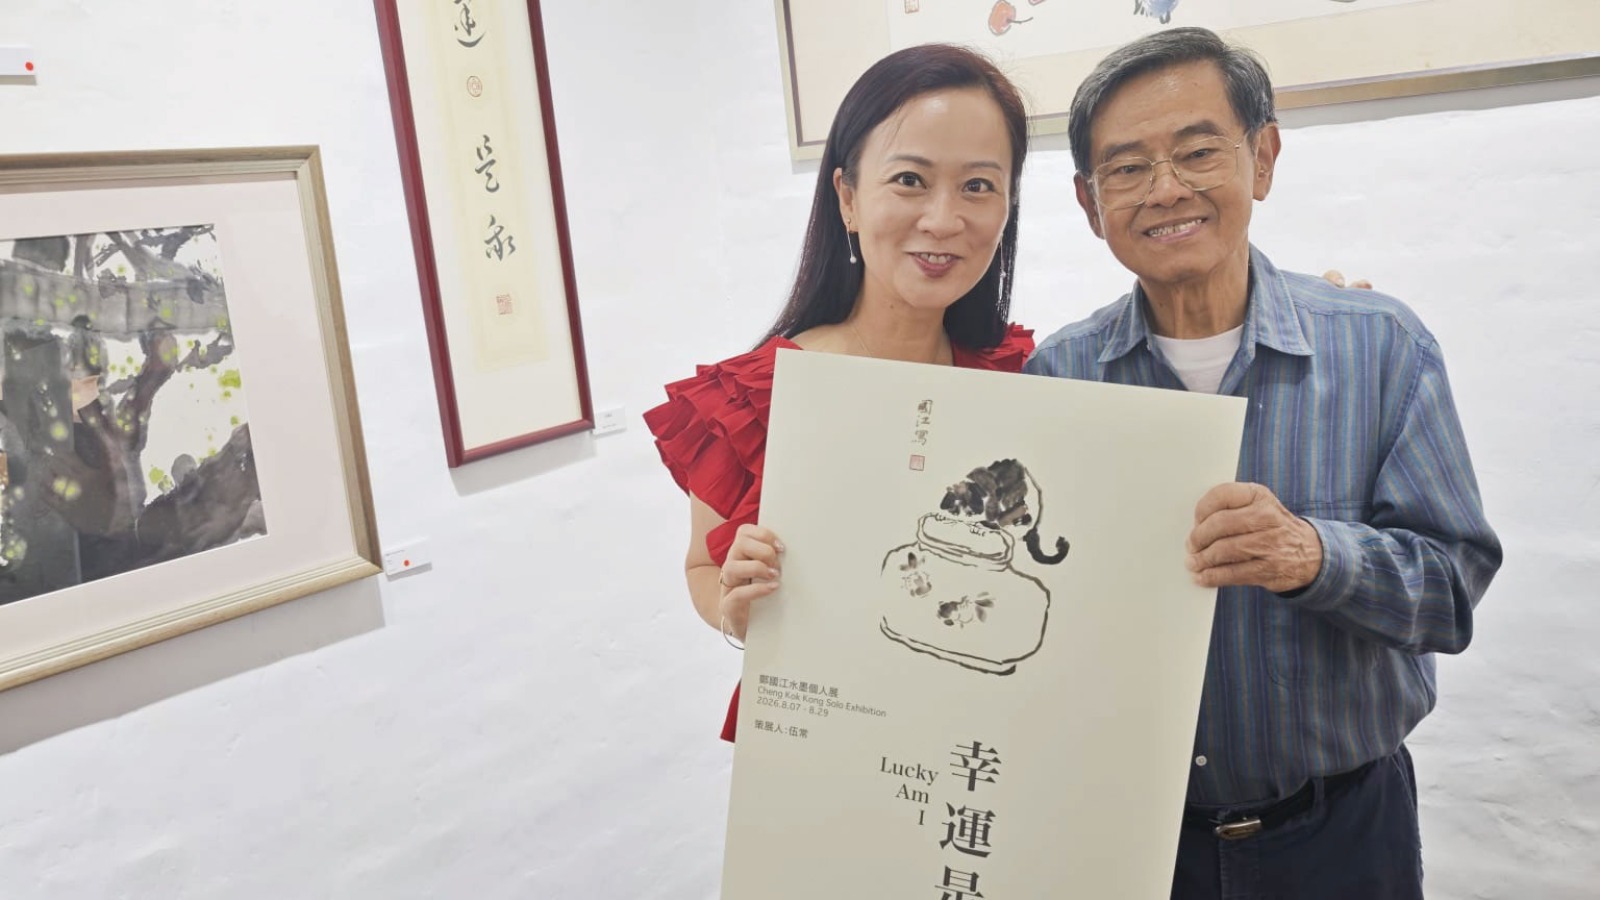 國江寫
鄭國江水墨個人展
Cheng Kok Kong Solo Exhibition
2026.8.07 - 8.29
策展人：伍常
Lucky
Am
I
幸運是